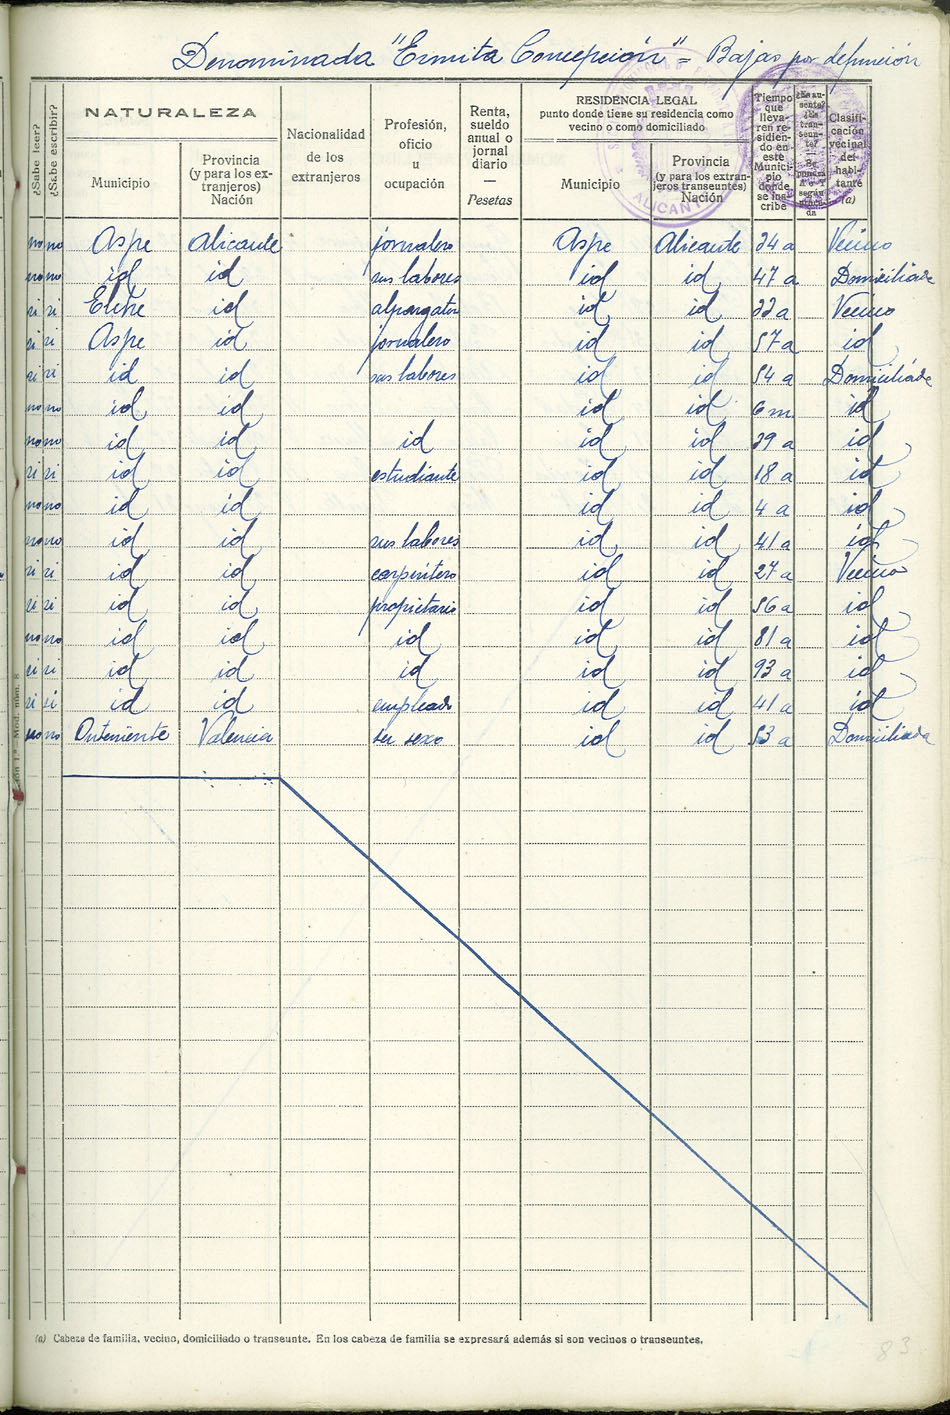 Denominada "Ermita Concepción" = Bajas por defunción
¿Sabe leer?
¿Sabe escribir?
NATURALEZA
Municipio
Provincia (y para los extranjeros) Nación
Nacionalidad de los extranjeros
Profesión, oficio u ocupación
Renta, sueldo anual o jornal diario — Pesetas
RESIDENCIA LEGAL
punto donde tiene su residencia como vecino o como domiciliado
Municipio
Provincia (y para los extranjeros transeuntes) Nación
Tiempo que llevaren residiendo en este Municipio donde se inscribe
Clasificación vecinal del habitante (a)
ALICANTE
no no Aspe Alicante jornalero Aspe Alicante 24 a Vecino
no no id id sus labores id id 47 a Domiciliada
si si Elche id alpargatero id id 22 a Vecino
si si Aspe id jornalero id id 57 a id
si si id id sus labores id id 54 a Domiciliada
no no id id id id 6 m id
no no id id id id id 29 a id
si si id id estudiante id id 18 a id
no no id id id id 4 a id
no no id id sus labores id id 41 a id
si si id id carpintero id id 27 a Vecino
si si id id propietario id id 56 a id
no no id id id id id 81 a id
si si id id id id id 93 a id
si si id id empleado id id 41 a id
no no Onteniente Valencia su sexo id id 53 a Domiciliada
(a) Cabeza de familia, vecino, domiciliado o transeunte. En los cabeza de familia se expresará además si son vecinos o transeuntes.
83